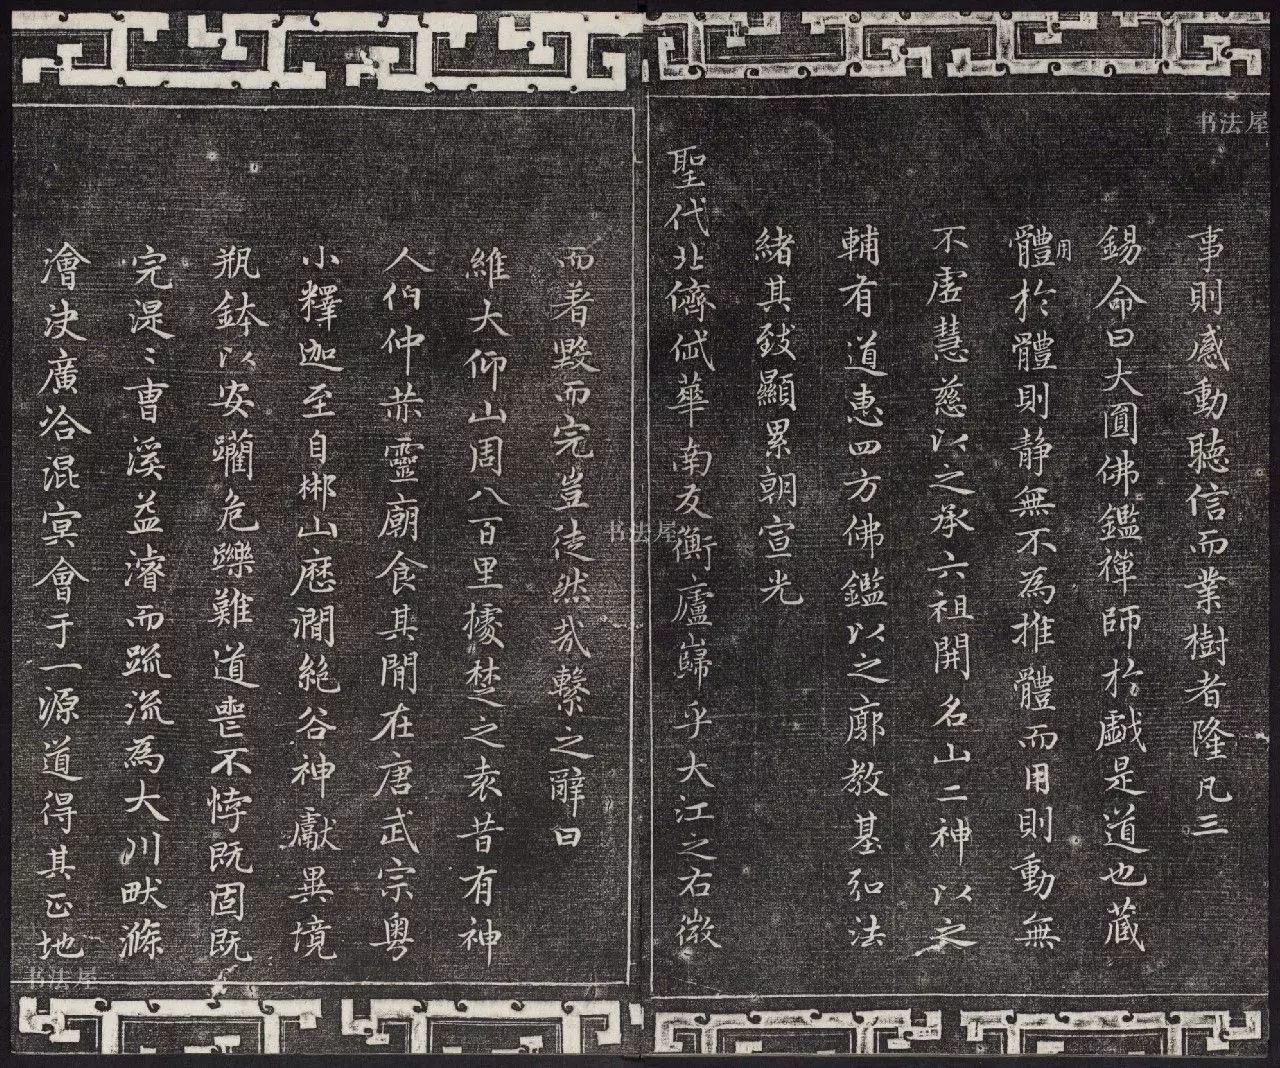 事則感動聽信而業樹者隆凡三
錫命曰大圓佛鑑禪師於戲是道也藏
體用於體則静無不為推體而用則動無
不虛慧慈以之承六祖開名山二神以之
輔有道惠四方佛鑑以之廓教基弘法
緒其致顯累朝宣光
聖代北儕華南友衡廬巋乎大江之右微
而著毀而完豈徒然哉繫之辭曰
維大仰山周八百里據楚之袁昔有神
人伯仲恭靈廟食其間在唐武宗粵
小釋迦至自郴山歷澗絕谷神獻異境
瓶鉢以安躪危躒難道喪不悖既固既
完湜〻曹溪益濬而疏流為大川畎滌
澮決廣洽混冥會于一源道得其正地
书法屋
书法屋
书法屋